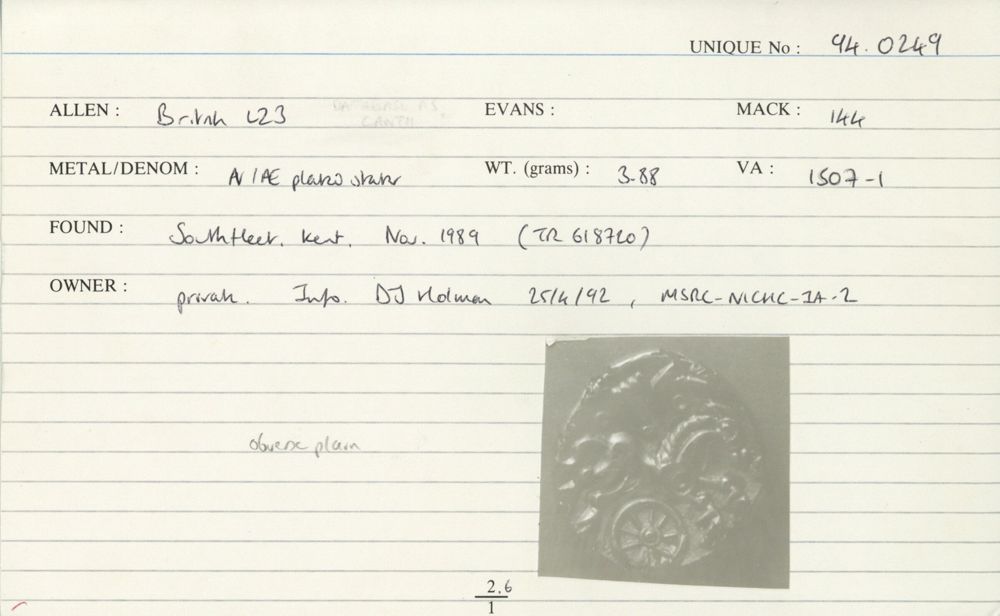 UNIQUE No : 94.0249
ALLEN : British L23 EVANS : MACK : 144
DATABASE AS
CANTII
METAL/DENOM : AV/AE plated stater WT. (grams) : 3.88 VA : 1507-1
FOUND : Southfleet, Kent, Nov. 1989 (TR 618720)
OWNER : private. Info. DJ Holman 25/4/92, MSRC-NICHC-IA-2
obverse plain
2.6
1